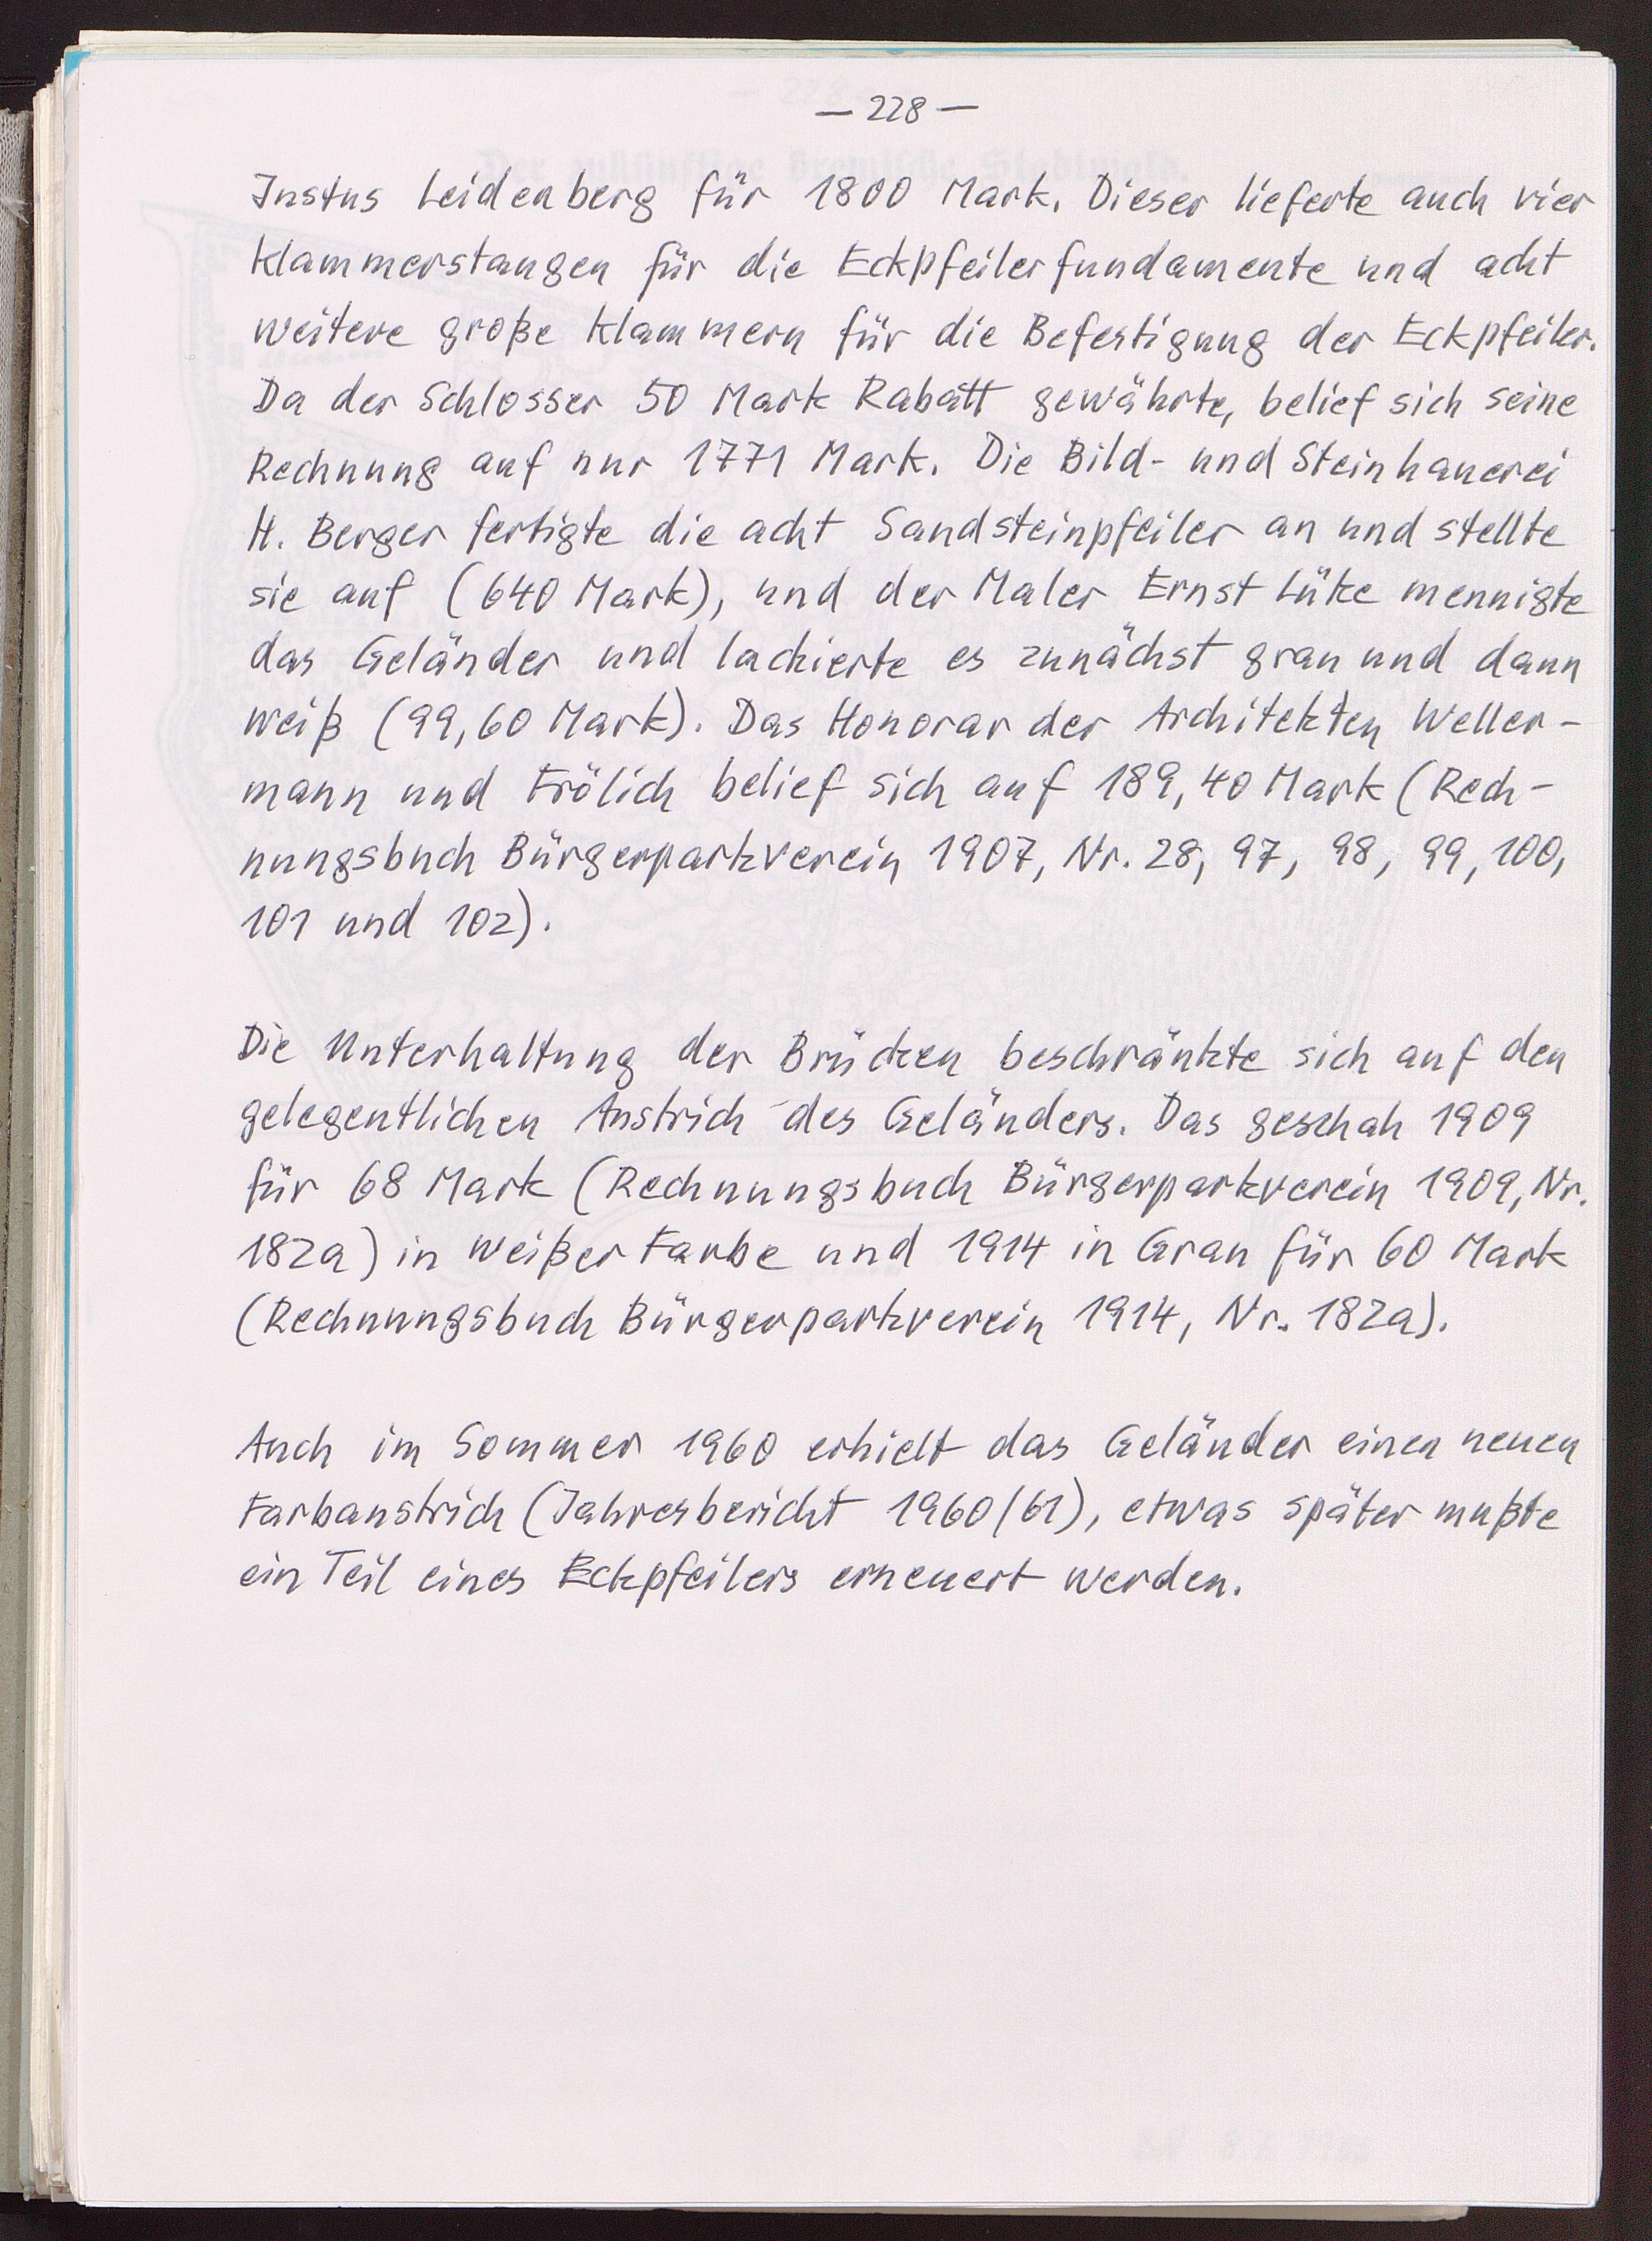 — 228 —
Justus Leidenberg für 1800 Mark. Dieser lieferte auch vier
Klammerstangen für die Eckpfeilerfundamente und acht
weitere große Klammern für die Befestigung der Eckpfeiler.
Da der Schlosser 50 Mark Rabatt gewährte, belief sich seine
Rechnung auf nur 1771 Mark. Die Bild- und Steinhauerei
H. Berger fertigte die acht Sandsteinpfeiler an und stellte
sie auf (640 Mark), und der Maler Ernst Lüke mennigte
das Geländer und lackierte es zunächst grau und dann
weiß (99,60 Mark). Das Honorar der Architekten Weller-
mann und Frölich belief sich auf 189,40 Mark (Rech-
nungsbuch Bürgerparkverein 1907, Nr. 28, 97, 98, 99, 100,
101 und 102).
Die Unterhaltung der Brücken beschränkte sich auf den
gelegentlichen Anstrich des Geländers. Das geschah 1909
für 68 Mark (Rechnungsbuch Bürgerparkverein 1909, Nr.
182a) in weißer Farbe und 1914 in Grau für 60 Mark
(Rechnungsbuch Bürgerparkverein 1914, Nr. 182a).
Auch im Sommer 1960 erhielt das Geländer einen neuen
Farbanstrich (Jahresbericht 1960/61), etwas später mußte
ein Teil eines Eckpfeilers erneuert werden.